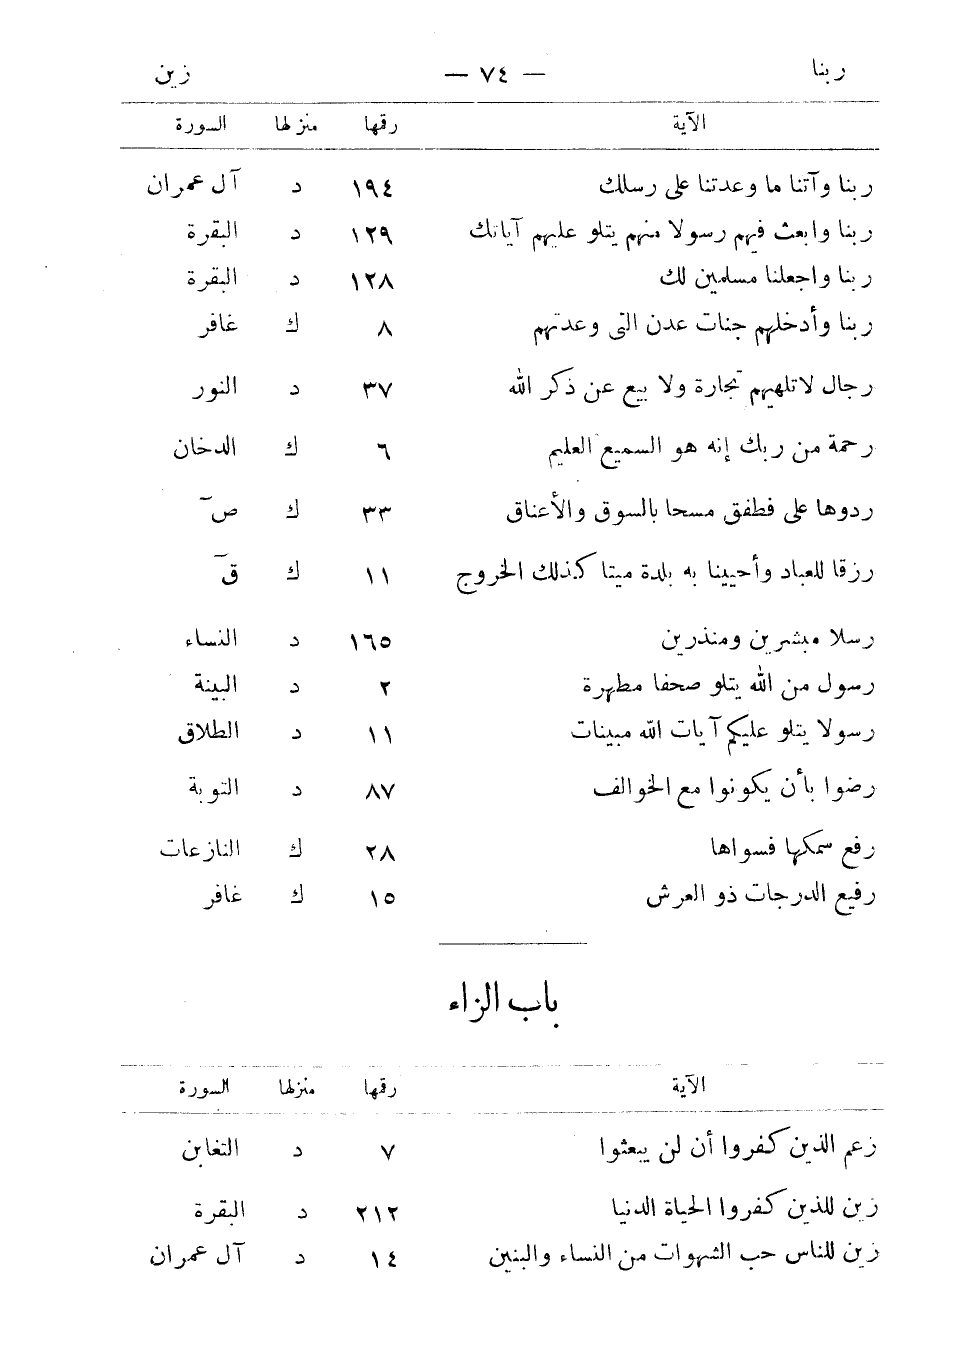 ربنا — ٧٤ — زين
الآية رقمها منزلها السورة
ربنا وآتنا ما وعدتنا على رسلك ١٩٤ د آل عمران
ربنا وابعث فيهم رسولا منهم يتلو عليهم آياتك ١٢٩ د البقرة
ربنا واجعلنا مسلمين لك ١٢٨ د البقرة
ربنا وأدخلهم جنات عدن التى وعدتهم ٨ ك غافر
رجال لاتلهيهم تجارة ولا بيع عن ذكر الله ٣٧ د النور
رحمة من ربك إنه هو السميع العليم ٦ ك الدخان
ردوها على فطفق مسحا بالسوق والأعناق ٣٣ ك صٓ
رزقا للعباد وأحيينا به بلدة ميتا كذلك الخروج ١١ ك قٓ
رسلا مبشرين ومنذرين ١٦٥ د النساء
رسول من الله يتلو صحفا مطهرة ٢ د البينة
رسولا يتلو عليكم آيات الله مبينات ١١ د الطلاق
رضوا بأن يكونوا مع الخوالف ٨٧ د التوبة
رفع سمكها فسواها ٢٨ ك النازعات
رفيع الدرجات ذو العرش ١٥ ك غافر
باب الزاء
الآية رقمها منزلها السورة
زعم الذين كفروا أن لن يبعثوا ٧ د التغابن
زين للذين كفروا الحياة الدنيا ٢١٢ د البقرة
زين للناس حب الشهوات من النساء والبنين ١٤ د آل عمران